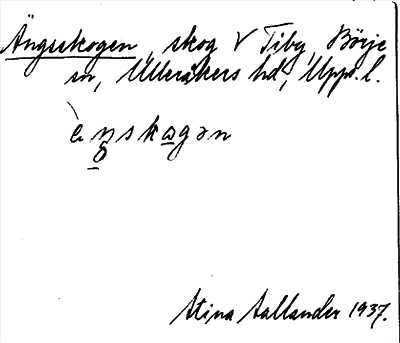 Ängsskogen, skog V Tiby, Börje
sn, Ulleråkers hd, Upps. l.
ęŋskogən
Stina Sallander 1937.